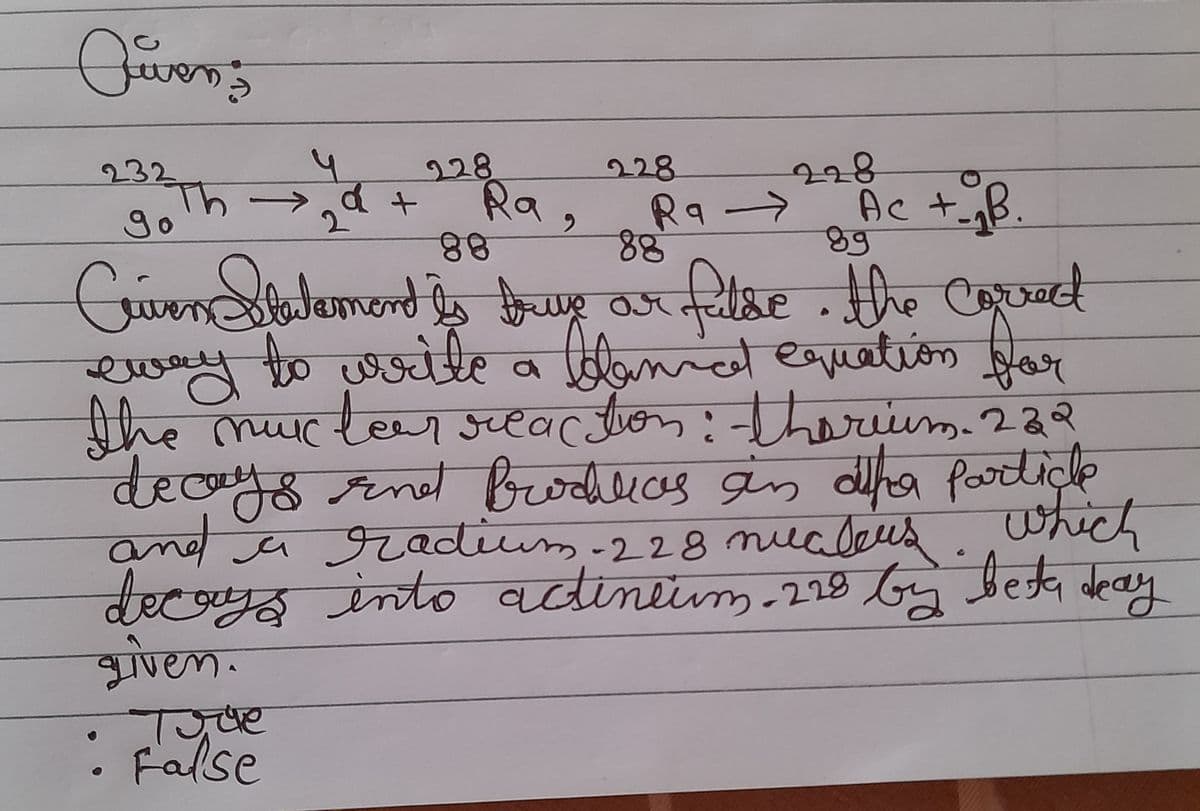 Given :-
²³²₉₀Th → ⁴₂α + ²²⁸₈₈Ra, ²²⁸₈₈Ra → ²²⁸₈₉Ac + ⁰₋₁β.
Given Statement is true or false. the Correct
eway to write a balanced equation for
the nuclear reaction :- thorium-232
decays and Produces an alpha particle
and a radium-228 nucleus. which
decays into actineium-228 by beta decay
given.
• True
• False